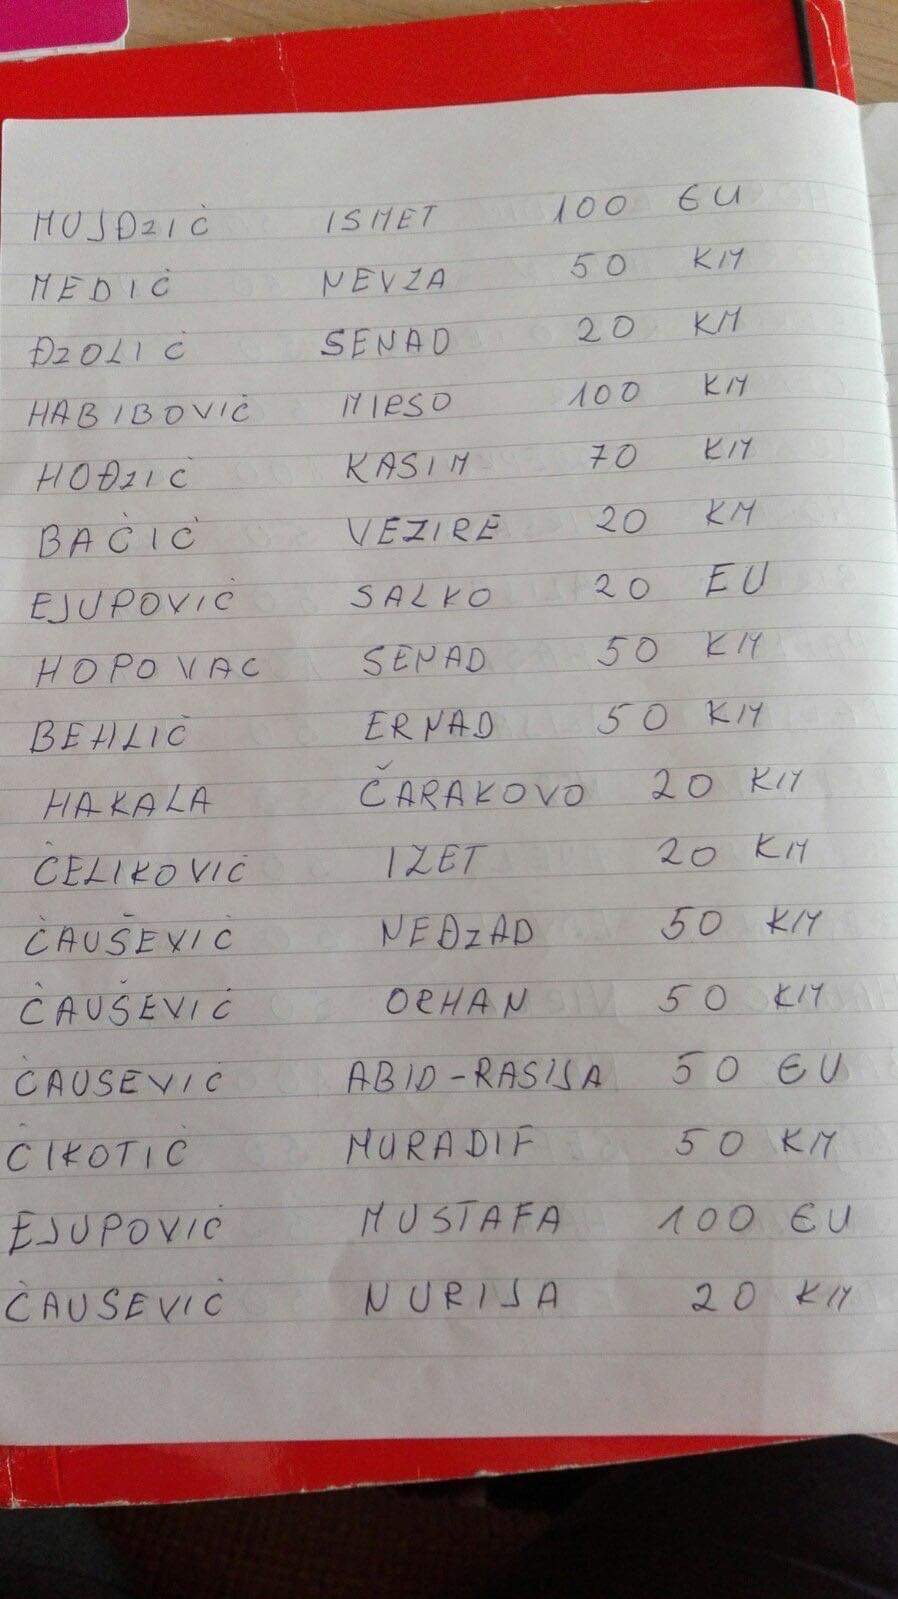 MUJĐZIĆ ISMET 100 EU
MEDIĆ NEVZA 50 KM
ĐZOLIĆ SENAD 20 KM
HABIBOVIĆ MIRSO 100 KM
HOĐZIĆ KASIM 70 KM
BAĆIĆ VEZIRE 20 KM
EJUPOVIĆ SALKO 20 EU
HOPOVAC SENAD 50 KM
BEHLIĆ ERNAD 50 KM
HAKALA ČARAKOVO 20 KM
ĆELIKOVIĆ IZET 20 KM
ĆAUŠEVIĆ NEĐZAD 50 KM
ĆAUŠEVIĆ ORHAN 50 KM
ĆAUSEVIĆ ABID-RASIJA 50 EU
ĆIKOTIĆ MURADIF 50 KM
EJUPOVIĆ MUSTAFA 100 EU
ĆAUSEVIĆ NURIJA 20 KM